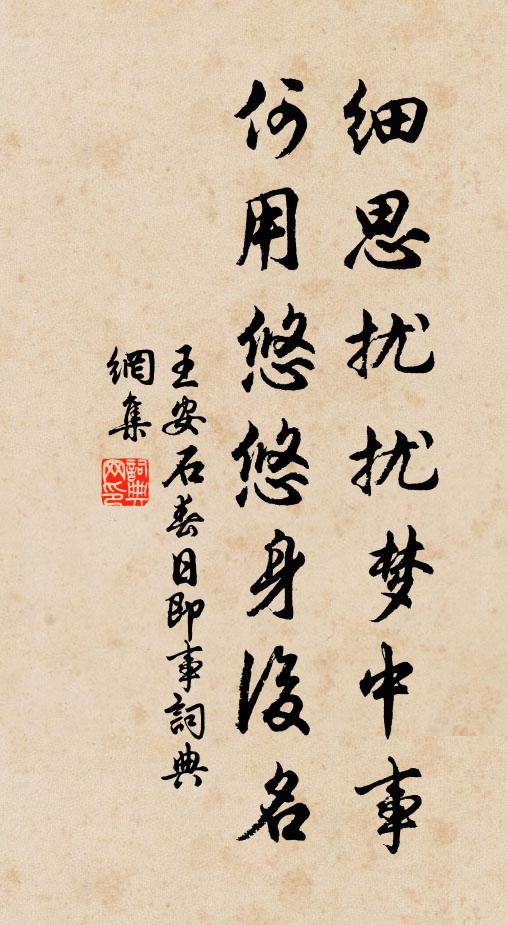 细思扰扰梦中事
何用悠悠身後名
王安石春日即事詞典
網集
詞典网印